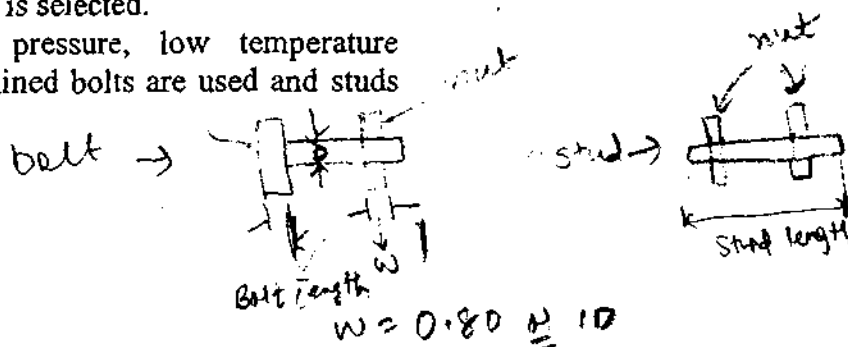 is selected.
pressure, low temperature
ined bolts are used and studs
nut
nut
bolt →
stud →
Stud length
Bolt length
W
W = 0.80